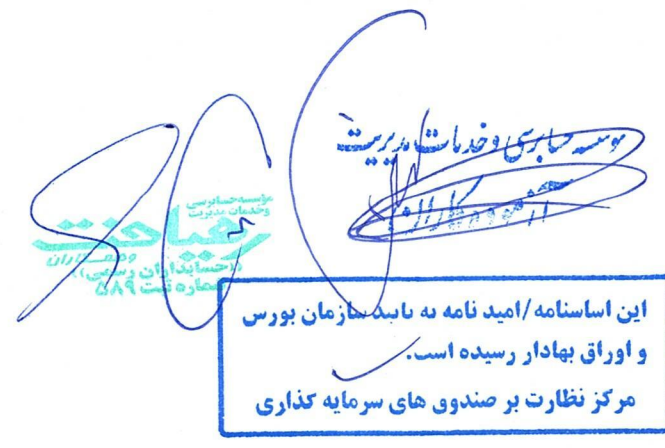 موسسه حسابرسی و خدمات مدیریت
آزمون پرداز
موسسه حسابرسی
وخدمات مدیریت
رهیافت
و همکاران
(حسابداران رسمی)
شماره ثبت ۵۸۹
این اساسنامه/امید نامه به تایید سازمان بورس
و اوراق بهادار رسیده است.
مرکز نظارت بر صندوق های سرمایه گذاری